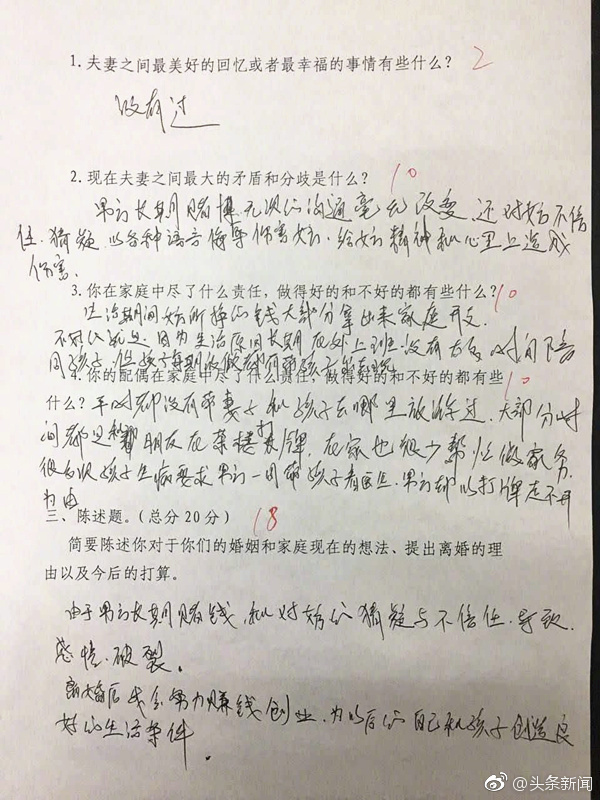 1.夫妻之间最美好的回忆或者最幸福的事情有些什么? 2
没有过
2.现在夫妻之间最大的矛盾和分歧是什么? 10
男方长期赌博无次的沟通毫无改变,还对女方不信
任.猜疑.以各种语言侮辱伤害女方.给女方精神和心里上造成
伤害.
3.你在家庭中尽了什么责任,做得好的和不好的都有些什么? 10
生活期间女方所挣的钱大部分拿出来家庭开支.
不好的就是因为生活原因长期在外上班没有太多时间陪
同孩子.
4.你的配偶在家庭中尽了什么责任,做得好的和不好的都有些
什么? 10
平时都没有带妻子和孩子去哪里放游过.大部分时
间都是和朋友在茶楼打牌.在家也很少帮忙做家务.
很多次孩子生病要求男方一同带孩子看医生.男方却以打牌走不开
为由
三、陈述题。(总分20分) 18
简要陈述你对于你们的婚姻和家庭现在的想法、提出离婚的理
由以及今后的打算。
由于男方长期赌钱,和对女方的猜疑与不信任.导致.
感情.破裂。
离婚后我会努力赚钱创业.为以后的自己和孩子创造良
好的生活条件.
@头条新闻